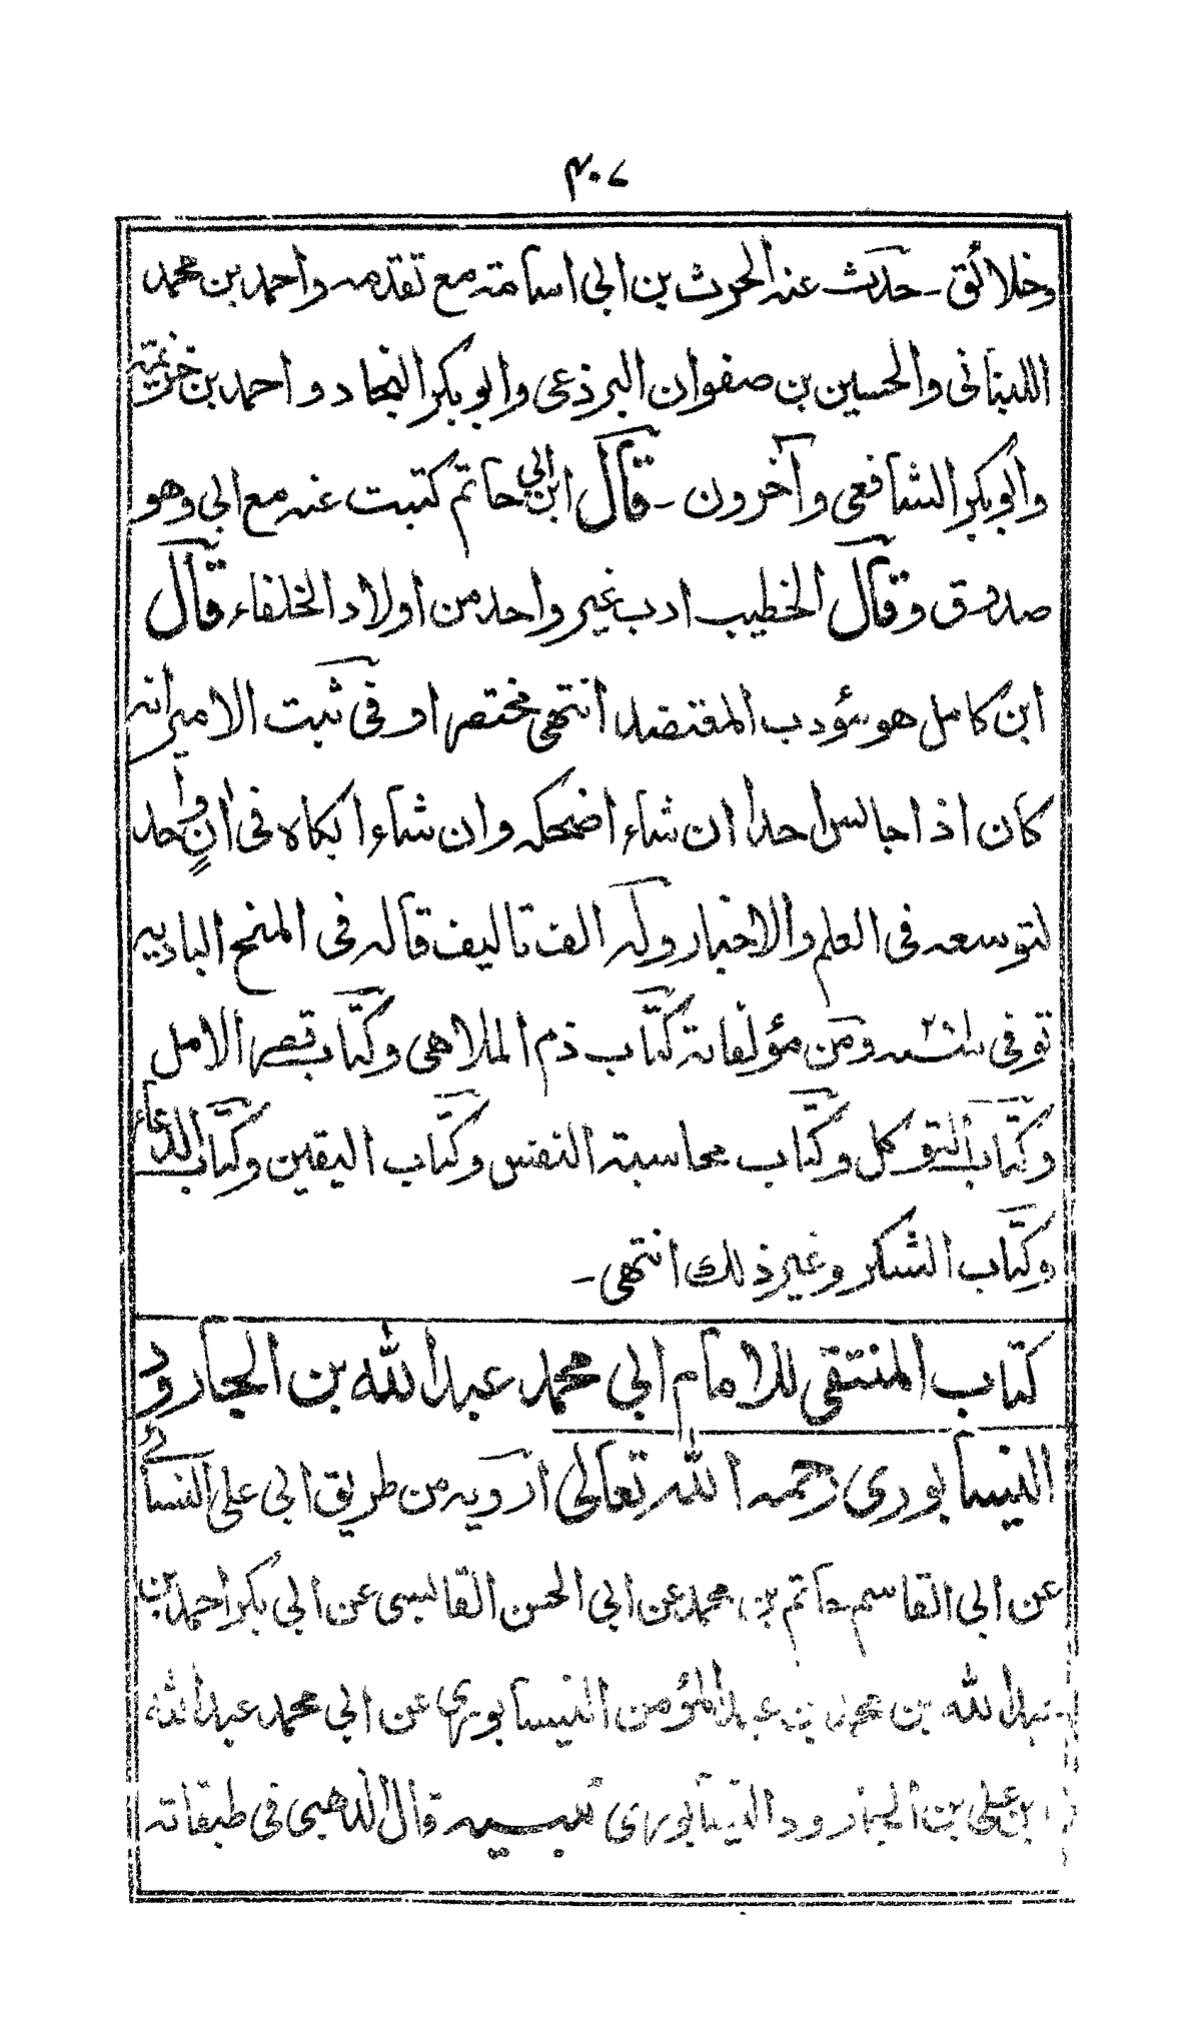 ٤٠٧
وخلائق ـ حدث عنه الحرث بن ابي اسامة مع تقدمه واحمد بن محمد
اللبناني والحسين بن صفوان البرذعي وابو بكر النجاد و احمد بن خزيمة
وابو بكر الشافعي وآخرون ـ قال ابن ابي حاتم كتبت عنه مع ابي وهو
صدوق وقال الخطيب ادب غير واحد من اولاد الخلفاء قال
ابن كامل هو مؤدب المقتضد انتهى مختصرا وفي ثبت الامير انه
كان اذا جالس احدا ان شاء اضحكه وان شاء ابكاه في انٍ واحد
لتوسعه في العلم والاخبار وله الف تاليف قاله في المنح الباديه
توفي ومن مؤلفاته كتاب ذم الملاهي وكتاب قصر الامل
وكتاب التوكل وكتاب محاسبة النفس وكتاب اليقين وكتاب الدعاء
وكتاب الشكر وغير ذلك انتهى ـ
كتاب المنتقى للامام ابي محمد عبد الله بن الجارود
النيسابوري رحمه الله تعالى ارويه من طريق ابي علي النسائي
عن ابي القاسم حاتم بن محمد عن ابي الحسن القابسي عن ابي بكر احمد بن
عبد الله بن محمد بن عبد المؤمن النيسابوري عن ابي محمد عبد الله
بن علي بن الجارود النيسابوري تنبيه قال الذهبي في طبقاته